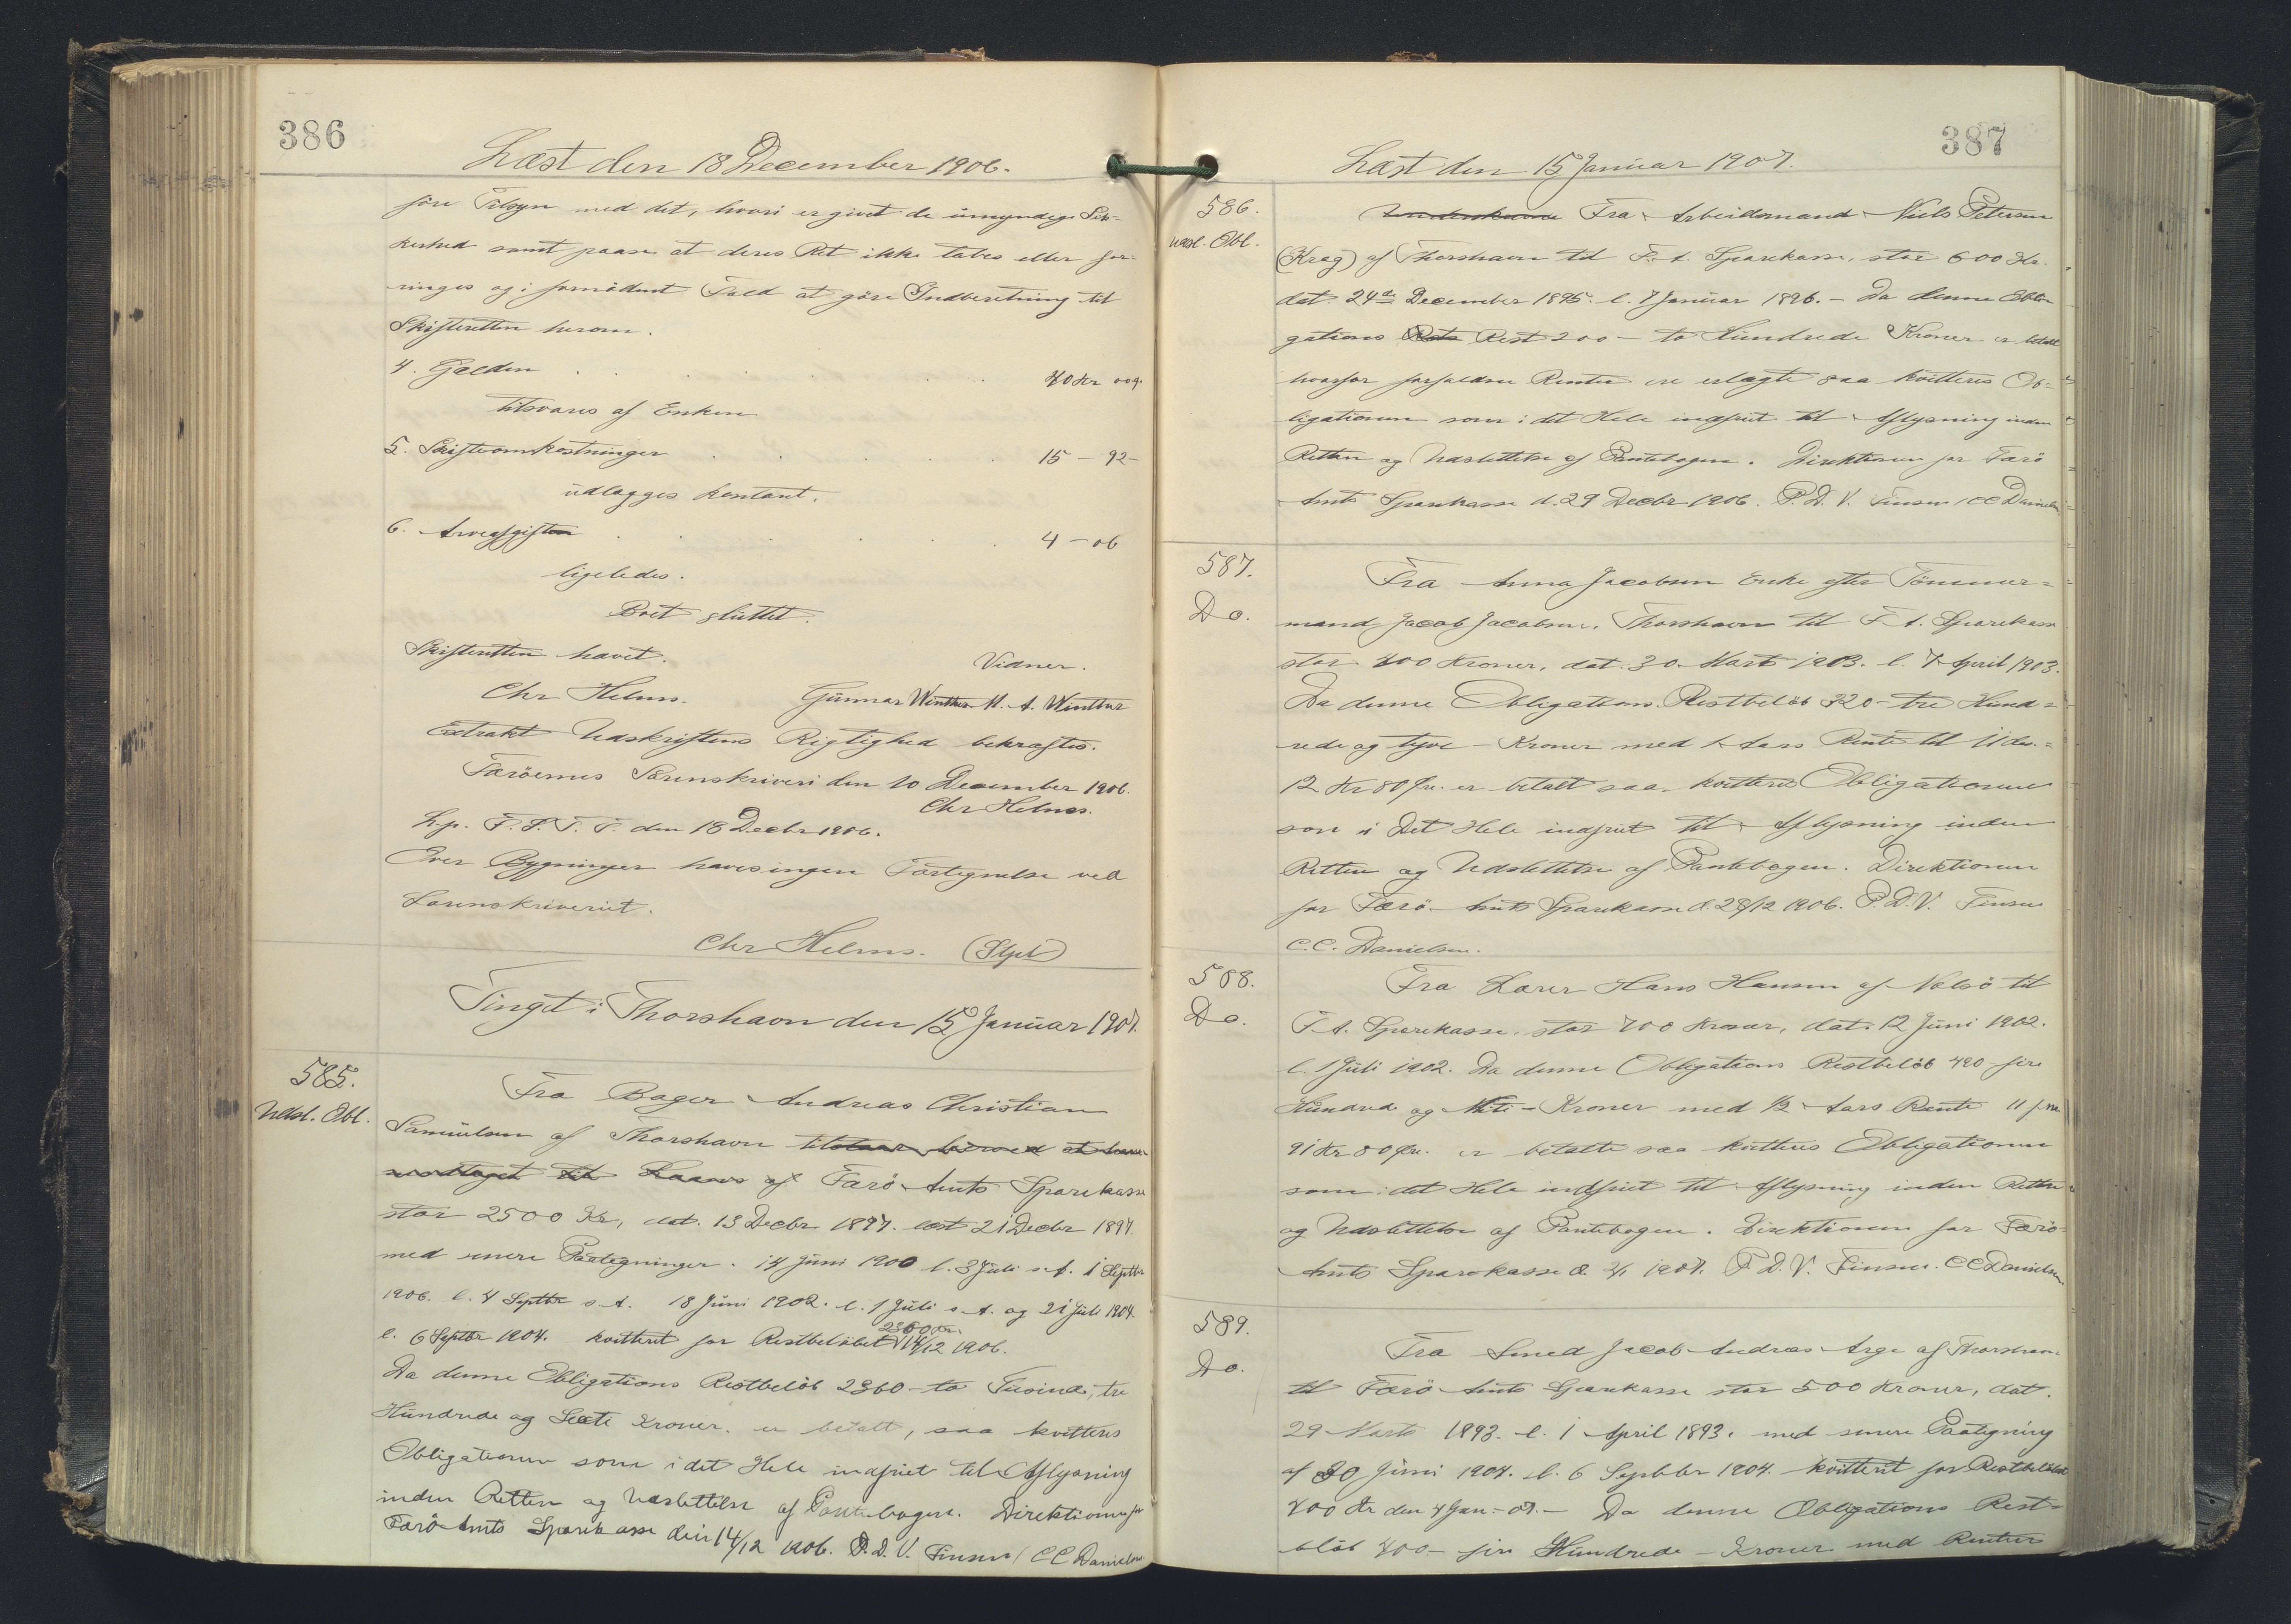 386
Læst den 18 December 1906.
före Tilsyn med det, hvori er givet de umyndige Sik-
kerhed samt paase at deres Ret ikke tabes eller for-
ringes og i fornödent Fald at göre Indberetning til
Skifteretten herom.
4. Gælden . . . . . . 40 Kr 00 ø.
tilsvares af Enken
5. Skifteomkostninger . . . . . 15 - 92 -
udlægges kontant.
6. Arveafgiften . . . . . 4 - 06
ligeledes.
Boet sluttet.
Skifteretten hævet. Vidner.
Chr Helms. Gunnar Winther M. A. Winther
Extrakt Udskriftens Rigtighed bekræftes.
Færöernes Sorenskriveri den 10 December 1906.
Chr Helms.
L.p. F. S. T. T. den 18 Decbr 1906.
Over Bygninger haves ingen Fortegnelse ved
Sorenskriveriet.
Chr Helms. (Stpl)
Tinget i Thorshavn den 15 Januar 1907.
585.
Udsl. Obl.
Fra Bager Andreas Christian
Samuelsen af Thorshavn tilstaar herved at have
modtaget til Laans af Færö Amts Sparekasse
stor 2500 Kr, dat. 13 Decbr 1897. læst 21 Decbr 1897.
med senere Paategninger. 14 Juni 1900 l. 3 Juli s. A. 1 Septbr
1906. l. 4 Septbr s. A. 18 Juni 1902. l. 1 Juli s. A. og 21 Juli 1904.
2360 Kr.
l. 6 Septbr 1904. kvitteret for Restbelöbet 14/12 1906.
Da denne Obligations Restbelöb 2360 - to Tusind, tre
Hundrede og Sexti Kroner. er betalt, saa kvitteres
Obligationen som i det Hele indfriet til Aflysning
inden Retten og Udslettelse af Pantebogen. Direktionen for
Færö Amts Sparekasse den 14/12 1906. P. D. V. Finsen / C C Danielsen
387
Læst den 15 Januar 1907.
586.
Udsl. Obl.
Fra Arbeidsmand Niels Petersen
(Krag) af Thorshavn til F. A. Sparekasse, stor 600 Kr.
dat. 24de December 1895. l. 7 Januar 1896. - Da denne Obli-
gations Rest 200 - to Hundrede Kroner er betalt
hvorfor forfaldne Renter ere erlagte saa kvitteres Ob-
ligationen som i det Hele indfriet til Aflysning inden
Retten og Udslettelse af Pantebogen. Direktionen for Færö
Amts Sparekasse d. 29 Decbr 1906. P. D. V. Finsen / C C Danielsen
587.
Do.
Fra Anna Jacobsen Enke efter Tömmer-
mand Jacob Jacobsen, Thorshavn til F. A. Sparekasse
stor 400 Kroner, dat. 30. Marts 1903. l. 7 April 1903.
Da denne Obligations Restbelöb 320 - tre Hund-
rede og tyve - Kroner med 1 Aars Rente til 11 Dec. -
12 Kr 80 Øre er betalt saa kvitteres Obligationen
som i Det Hele indfriet til Aflysning inden
Retten og Udslettelse af Pantebogen. Direktionen
for Færö Amts Sparekasse d. 28/12 1906. P. D. V. Finsen
C. C. Danielsen.
588.
Do.
Fra Lærer Hans Hansen af Nolsö til
F. A. Sparekasse stor 700 Kroner, dat. 12 Juni 1902.
l. 1 Juli 1902. Da denne Obligations Restbelöb 490 - fire
Hundrede og Niti - Kroner med 1/2 Aars Rente 11 f. m.
91 Kr 80 Øre. er betalte saa kvitteres Obligationen
som i det Hele indfriet til Aflysning inden Retten
og Udslettelse af Pantebogen. Direktionen for Færö
Amts Sparekasse d. 2/1 1907. P. D. V. Finsen. C C Danielsen.
589.
Do.
Fra Smed Jacob Andreas Arge af Thorshavn
til Færö Amts Sparekasse stor 500 Kroner, dat.
29 Marts 1893. l. 1 April 1893. med senere Paategning
af 20 Juni 1904. l. 6 Septbr 1904. kvitteret for Restbelöbet
400 Kr den 4 Jan. - 07. - Da denne Obligations Rest-
belöb 400 - fire Hundrede - Kroner med Renter